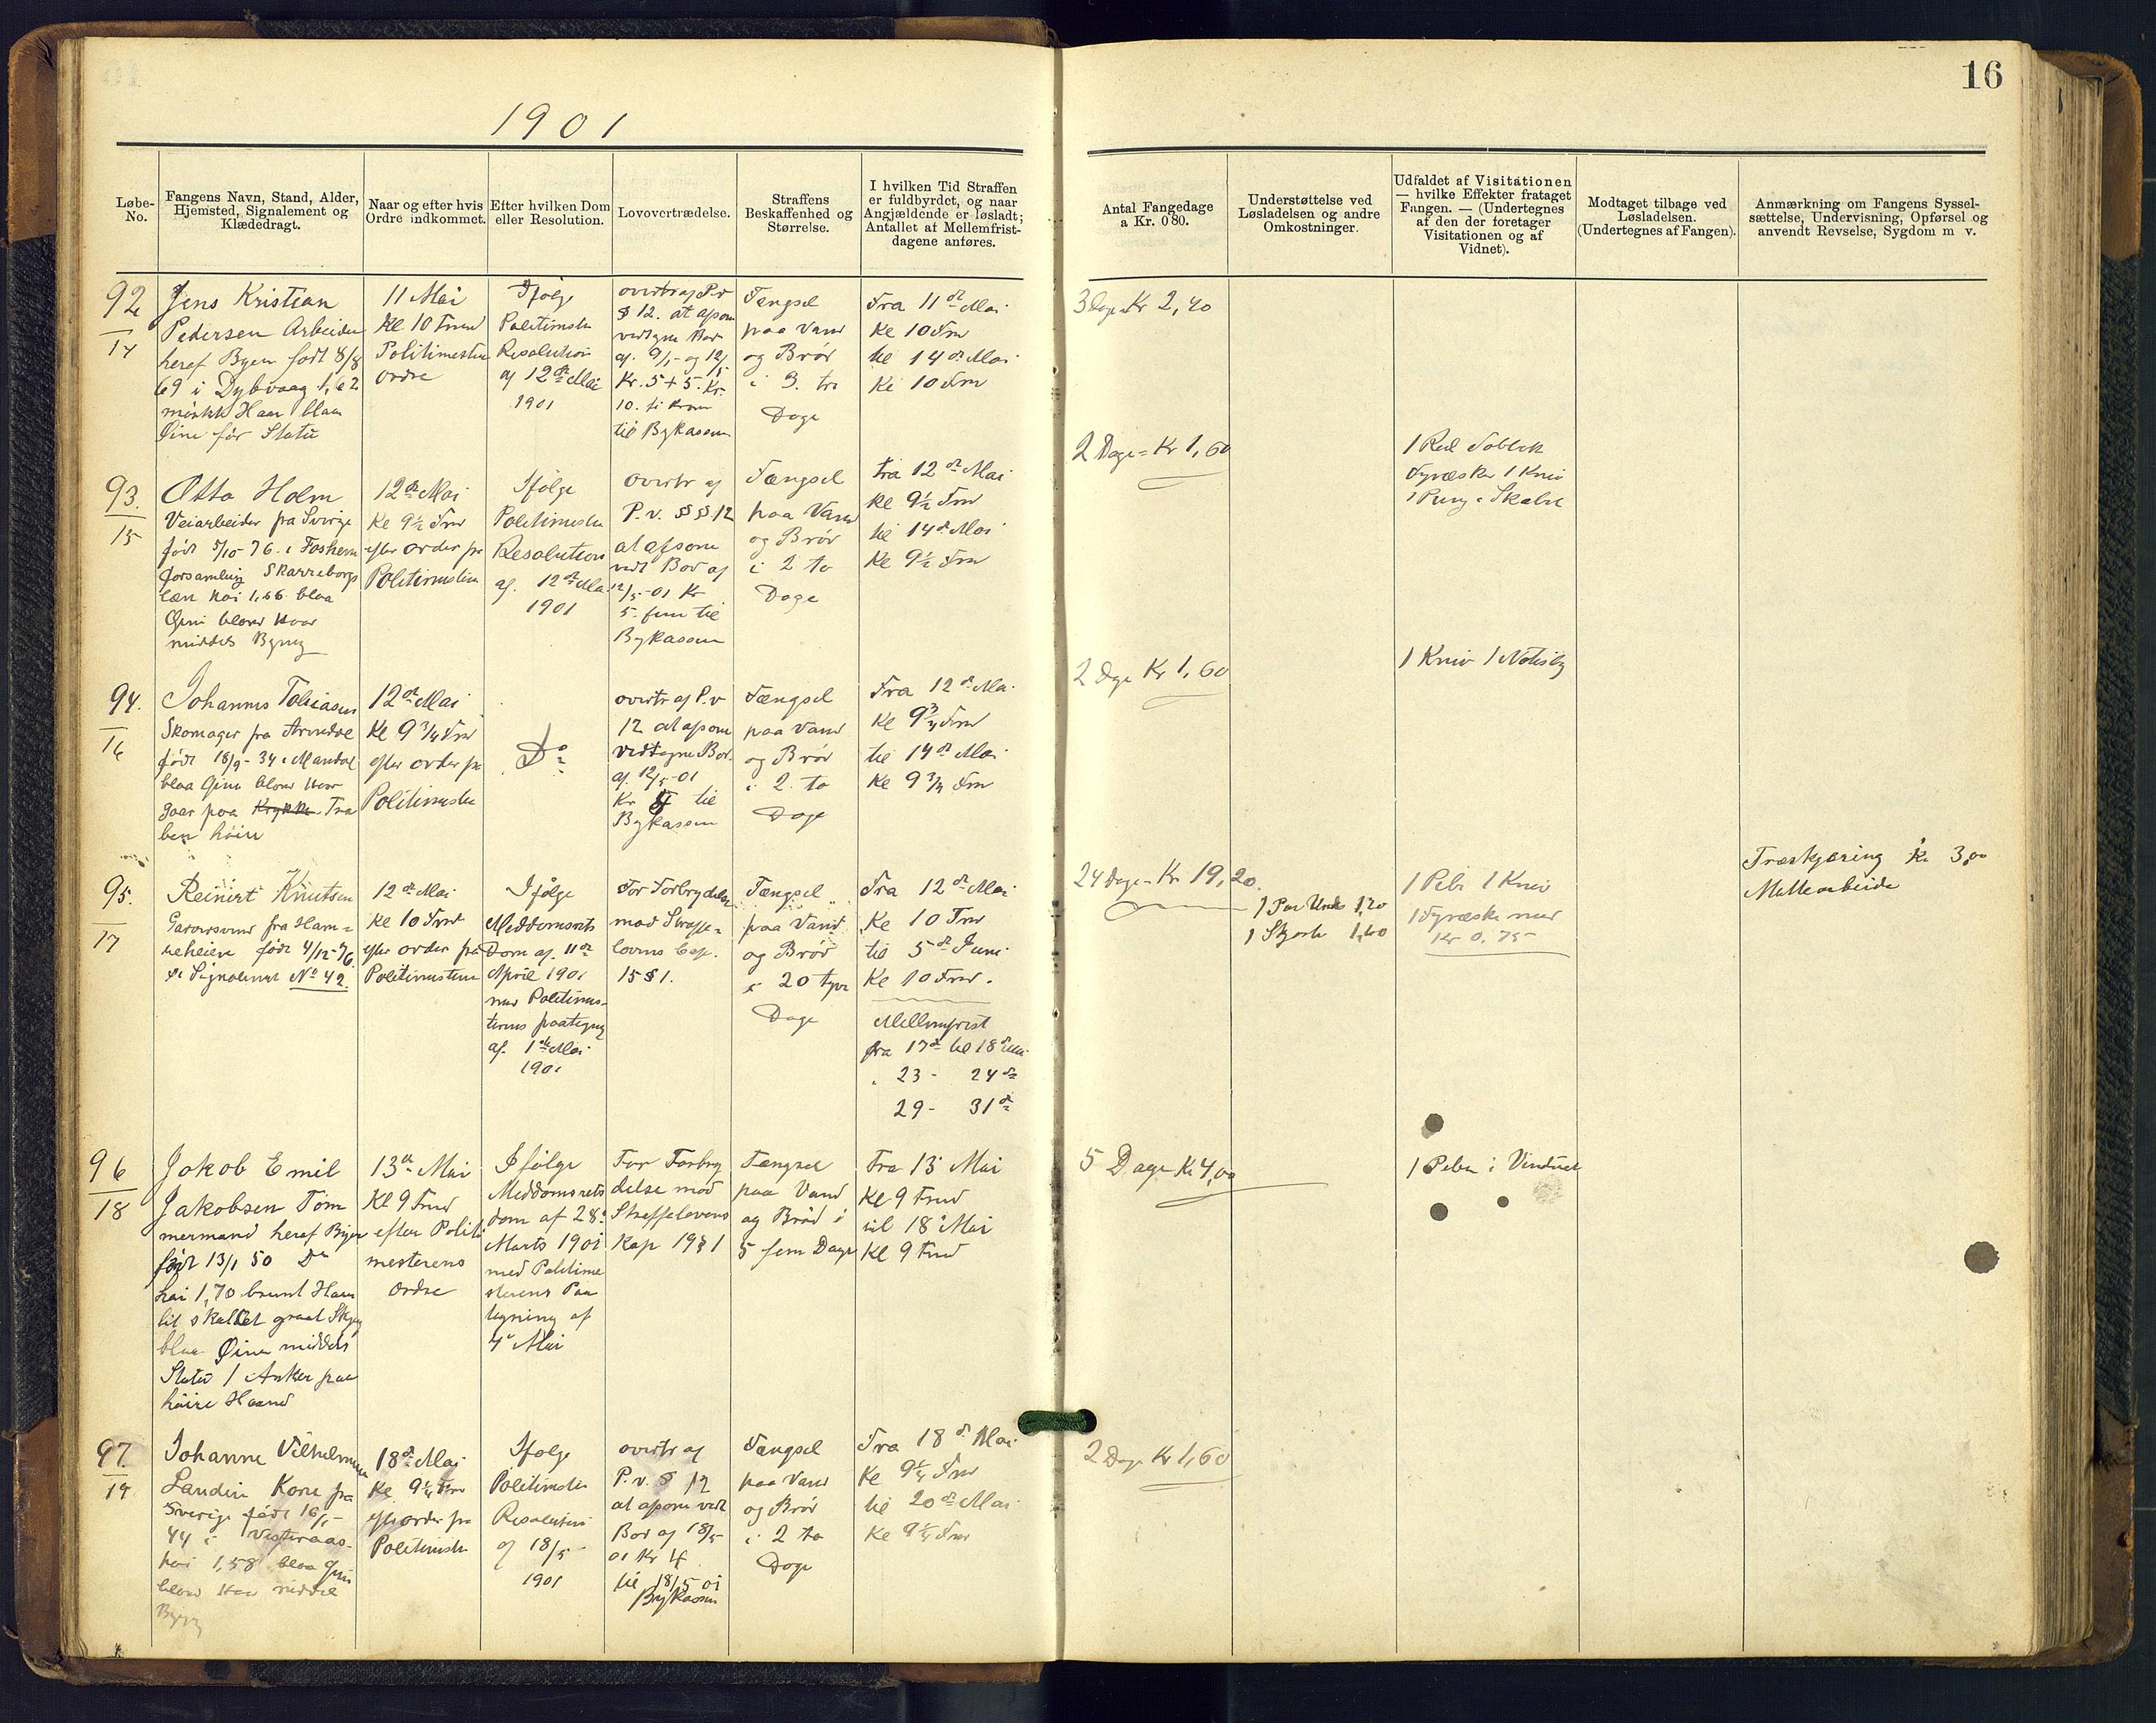 16
1901
Løbe-
No.
Fangens Navn, Stand, Alder,
Hjemsted, Signalement og
Klædedragt.
Naar og efter hvis
Ordre indkommet.
Efter hvilken Dom
eller Resolution.
Lovovertrædelse.
Straffens
Beskaffenhed og
Størrelse.
I hvilken Tid Straffen
er fuldbyrdet, og naar
Angjældende er løsladt;
Antallet af Mellemfrist-
dagene anføres.
Antal Fangedage
a Kr. 0 80.
Understøttelse ved
Løsladelsen og andre
Omkostninger.
Udfaldet af Visitationen
— hvilke Effekter frataget
Fangen. — (Undertegnes
af den der foretager
Visitationen og af
Vidnet).
Modtaget tilbage ved
Løsladelsen.
(Undertegnes af Fangen).
Anmærkning om Fangens Syssel-
sættelse, Undervisning, Opførsel og
anvendt Revselse, Sygdom m v.
92
14
Jens Kristian
Pedersen Arbeider
heraf Byen født 8/8
69 i Dybvaag 1,62
mørkt Haar blaa
Øine før Statu
11 Mai
Kl 10 Fmd
Politimester
Ordre
Ifølge
Politimester
Resolution
af 12te Mai
1901
overtr af P.v
§ 12. at afsone
vedtagne Bod
af 9/5 og 12/5
Kr. 5 + 5. Kr.
10. ti Kroner
til Bykassen
Fængsel
paa Vand
og Brød
i 3. tre
Dage
Fra 11te Mai
Kl 10 Fmd
til 14de Mai
Kl 10 Fmd
3 Dage Kr 2,40
93.
15
Otto Holm
Veiarbeider fra Sverige
født 5/10-76. i
forsamling Skarreborgs
læn høi 1,66 blaa
Øine blond Haar
middels Bygnig
12te Mai
Kl 9½ Fmd
efter order fra
Politimesteren
Ifølge
Politimester
Resolution
af. 12te Mai
1901
overtr af
P. v. §§ 12
at afsone
vedt Bod af
12/5-01 Kr
5. fem til
Bykassen
Fængsel
paa Vand
og Brød
i 2 to
Dage
fra 12te Mai
Kl 9½ Fmd
til 14de Mai
Kl 9½ Fmd
2 Dage = Kr 1,60
1 Kniv
94.
16
Johannes Tobiasen
Skomager fra Arendal
født 18/9-34 i Mandal
blaa Øine blond Haar
gaar paa Krykke Træ
ben høire
12te Mai
Kl 9¾ Fmd
efter order fra
Politimester
Do
overtr af P.v
12 at afsone
vedtagne Bod.
af. 12/5-01
Kr 4 til
Bykassen
Fængsel
paa Vand
og Brød
i 2. to
Dage
Fra 12te Mai
Kl 9¾ Fmd
til 14de Mai
Kl 9¾ Fmd
2 Dage Kr 1,60
1 Kniv 1 Notisbg
95.
17
Reinert Knutsen
fra Ham-
reheien født 4/12-76
se Signalement No 42.
12te Mai
Kl 10 Fmd
efter order fra
Politimesteren
Ifølge
Meddomsrets
Dom af. 11te
April 1901
med Politimes-
terens paategng
af. 1ste Mai
1901
For Forbrydelse
mod Straffe-
lovens Cap.
15 § 1.
Fængsel
paa Vand
og Brød
i 20 tyve
Dage
Fra 12te Mai
Kl 10 Fmd
til 5te Juni
Kl 10 Fmd.
Mellemfrist
fra 17de til 18de Mai
" 23 - 24de
29 - 31te
24 Dage = Kr 19,20.
1 Par 1,20
1 Skjorte 1,60
1 Pibe 1 Kniv
1 Fyræske med
Kr 0,75
Træskjæring Kr 3,00
Mattearbeide
96
18
Jakob Emil
Jakobsen Tøm
mermand heraf Byen
født 13/1 50 Do
høi 1,70 brunt Haar
lit skaldet graat Skjeg
blaa Øine middels
Statu 1 Anker paa
høire Haand
13de Mai
Kl 9 Fmd
efter Politi
mesterens
Ordre
Ifølge
Meddomsrets
dom af 28de
Marts 1901
med Politime
sterens Paa
tegning af
4de Mai
For Forbry
delse mod
Straffelovens
Kap 19 § 1
Fængsel
paa Vand
og Brød i
5 fem Dage
Fra 13 Mai
Kl 9 Fmd
til 18de Mai
Kl 9 Fmd
5 Dage Kr 4,00
1 Pibe i Vinduet
97.
19
Johanne Vilhelmine
Landin Kone fra
Sverige født 16/1-
44 i Vesteraas-
høi 1,58 blaa Øine
blond Haar middel
Bygng
18de Mai
Kl 9¼ Fmd
efter order fra
Politimester
Ifølge
Politimester
Resolution
af 18/5
1901
overtr af
P. v. § 12
at afsone vedt
Bod af 18/5-
01 Kr 4
til 18/5 01
Bykassen
Fængsel
paa Vand
og Brød
i 2 to
Dage
Fra 18de Mai
Kl 9¼ Fmd
til 20de Mai
Kl 9¼ Fmd
2 Dage Kr 1,60